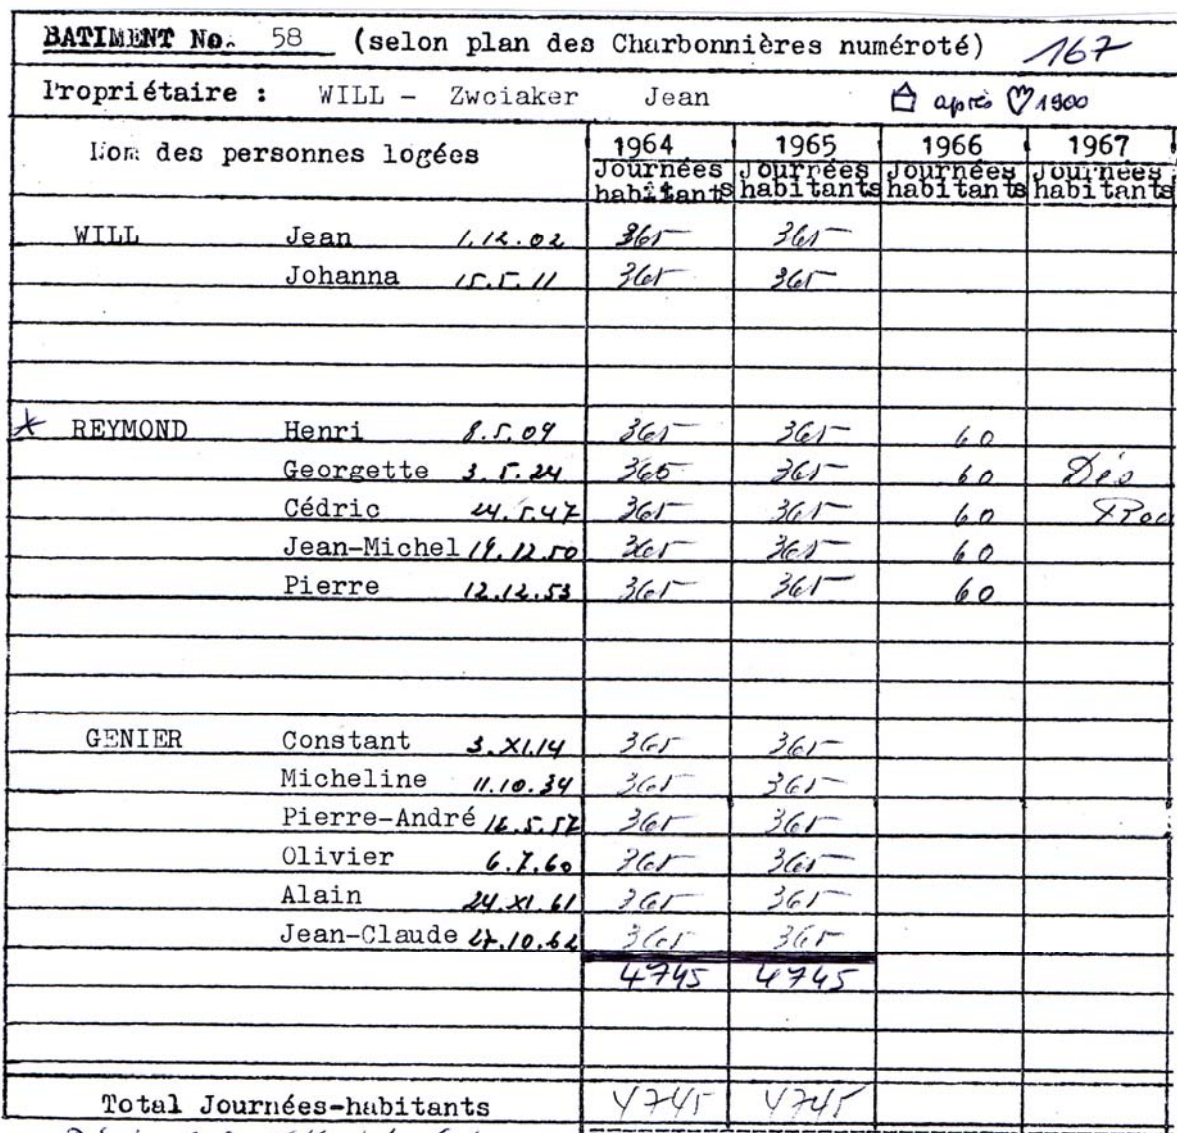 BATIMENT No. 58 (selon plan des Charbonnières numéroté) 167
Propriétaire : WILL - Zwciaker Jean après 1900
Nom des personnes logées 1964 1965 1966 1967
Journées Journées Journées Journées
habitants habitants habitants habitants
WILL Jean 1.12.02 365 365
Johanna 15.5.11 365 365
* REYMOND Henri 8.5.09 365 365 60
Georgette 3.5.24 365 365 60
Cédric 24.5.47 365 365 60
Jean-Michel 19.12.50 365 365 60
Pierre 12.12.53 365 365 60
GENIER Constant 3.XI.14 365 365
Micheline 11.10.34 365 365
Pierre-André 16.5.57 365 365
Olivier 6.7.60 365 365
Alain 24.XI.61 365 365
Jean-Claude 27.10.62 365 365
4745 4745
Total Journées-habitants 4745 4745